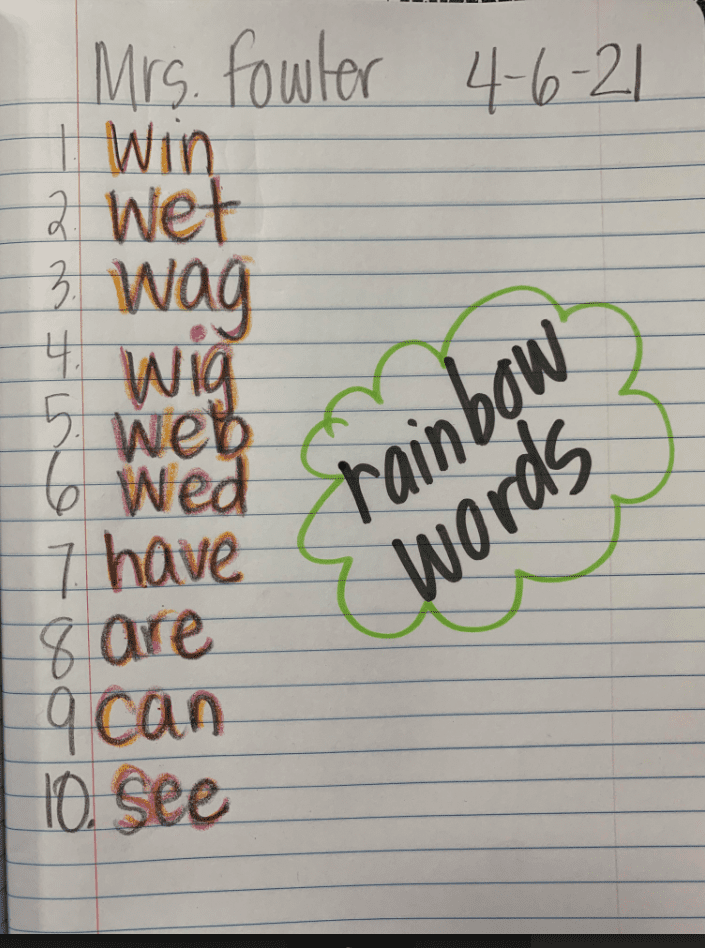 Mrs. Fowler 4-6-21
1. win
2. wet
3. wag
4. wig
5. web
6 wed
7. have
8 are
9 can
10. see
rainbow
words